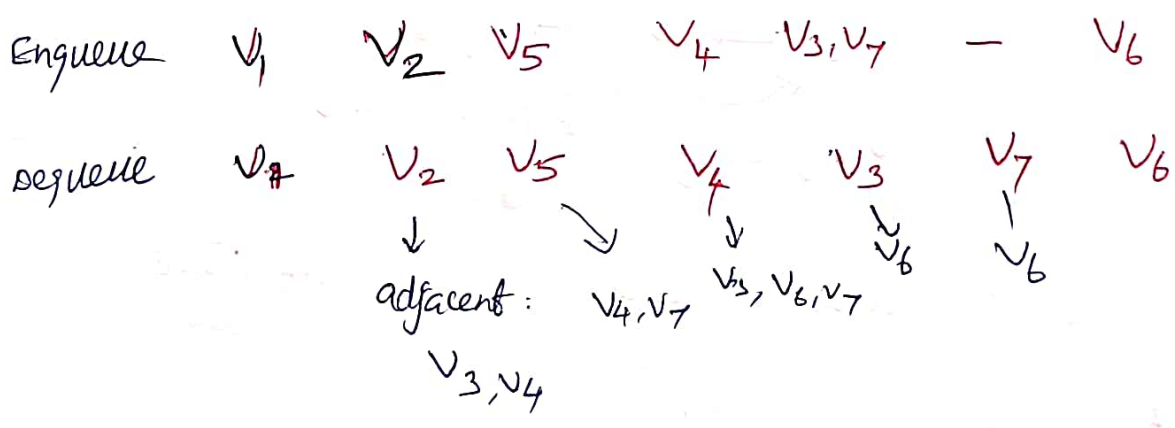 Enqueue V1 V2 V5 V4 V3, V7 — V6
Dequeue V1 V2 V5 V4 V3 V7 V6
↓ ↘ ↓ ↘ |
V6 V6
adjacent: V4, V7 V3, V6, V7
V3, V4